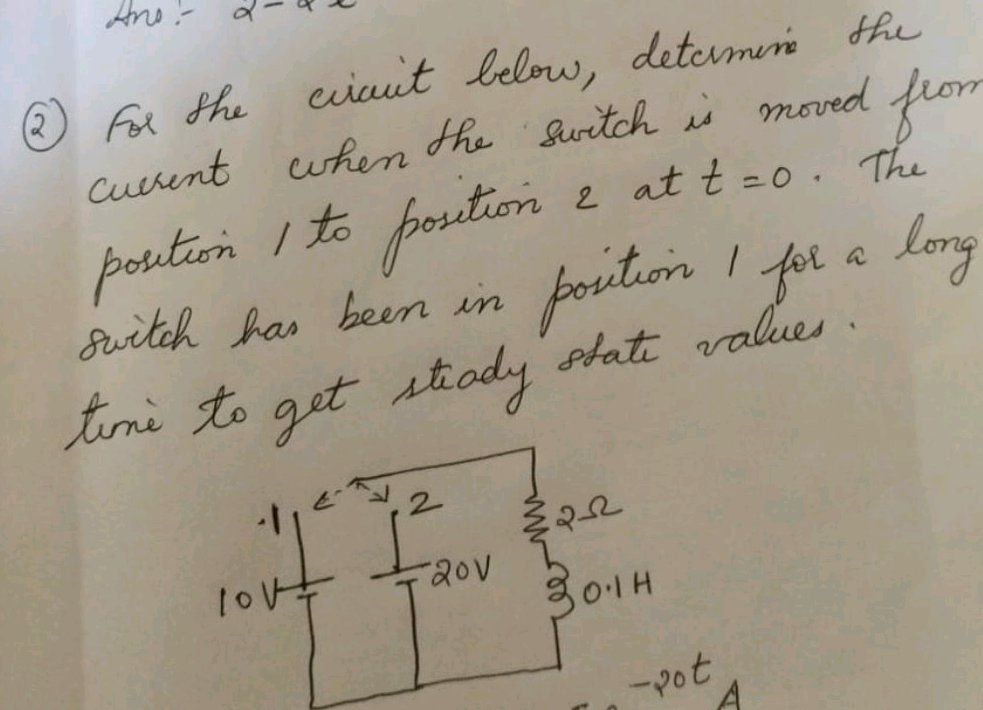 Ans :-
② For the circuit below, determine the
current when the switch is moved from
position 1 to position 2 at t = 0 . The
switch has been in position 1 for a long
time to get steady state values .
1
2
2Ω
10V
20V
0.1H
-20t
A